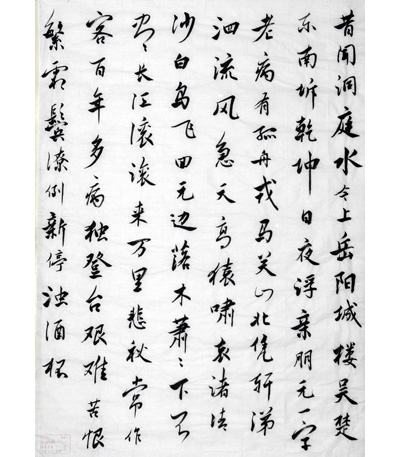 昔闻洞庭水今上岳阳城楼吴楚
东南坼乾坤日夜浮亲朋无一字
老病有孤舟戎马关山北凭轩涕
泗流风急天高猿啸哀渚清
沙白鸟飞回无边落木萧〻下不
尽长江滚滚来万里悲秋常作
客百年多病独登台艰难苦恨
繁霜鬓潦倒新停浊酒杯